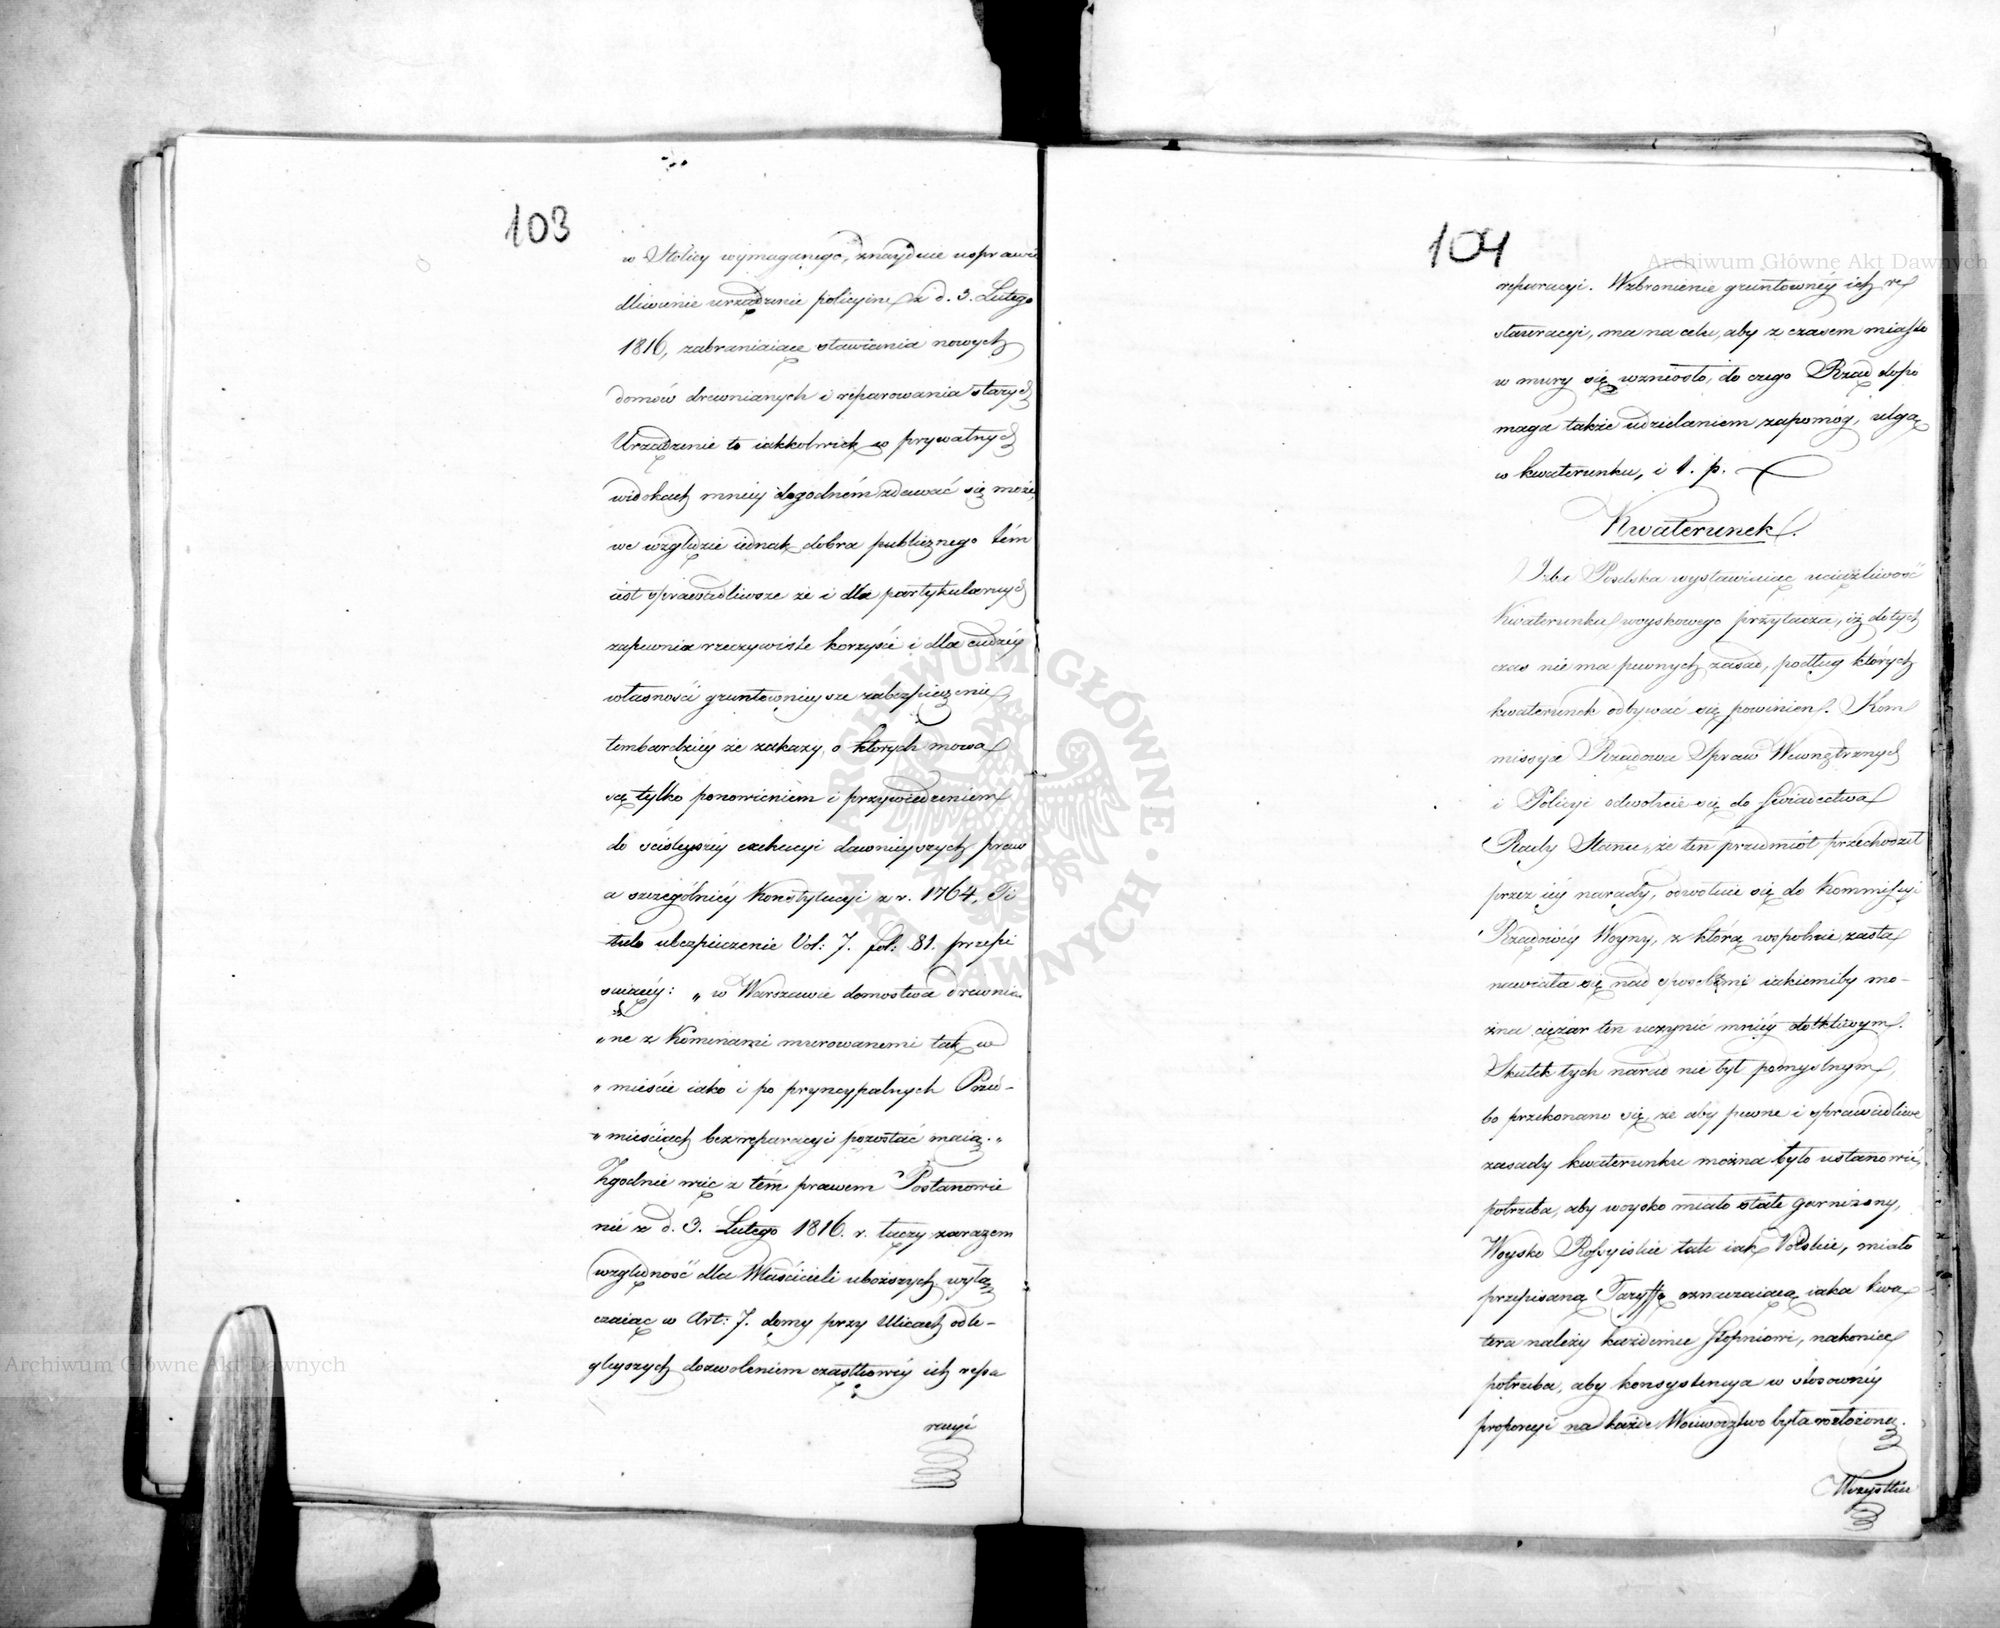 103
w Stolicy wymaganego, znayduie usprawie
dliwienie urządzenie policyine z d. 3. Lutego
1816, zabraniaiące stawiania nowych
domów drewnianych i reparowania starych
Urządzenie to iakkolwiek w prywatnych
widokach mniey dogodném zdawać się może,
we względzie iednak dobra publicznego tém
iest sprawiedliwsze że i dla partykularnych
zapewnia rzeczywiste korzyści i dla cudzéy
własności gruntownieysze zabezpieczenie,
tembardziéy że zakazy, o których mowa
są tylko ponowieniem i przywiedzeniem
do ścisleyszéy exekucyi dawnieyszych praw
a szczególniéy Konstytucyi z r. 1764, Ti
tulo ubezpieczenie Vol: 7. fol: 81. przepi
suiącéy: „w Warszawie domostwa drewnia
„ne z Kominami murowanemi tak w
„mieście iako i po pryncypalnych Przed-
„mieściach bez reparacyi pozostać maią."
Zgodnie więc z tém prawem Postanowie
nie z d. 3. Lutego 1816. r. łączy zarazem
względność dla Właścicieli uboższych, wyłą
czaiąc w Art: 7. domy przy Ulicach odle-
gleyszych dozwoleniem cząstkowéy ich repa
racyi
104
reparacyi. Wzbronienie gruntownéy ich re
stauracyi, ma na celu, aby z czasem miasto
w mury się wzniosło, do czego Rząd dopo
maga także udzielaniem zapomóg, ulgą
w kwaterunku, i t. p.
Kwaterunek.
Izba Poselska wystawiaiąc uciążliwość
Kwaterunku woyskowego przytacza, iż dotych
czas nie ma pewnych zasad, podług których
kwaterunek odbywać się powinien. Kom
missya Rządowa Spraw Wewnętrznych
i Policyi odwołuie się do świadectwa
Rady Stanu, że ten przedmiót przechodził
przez iéy narady, odwołuie się do Kommissyi
Rządowéy Woyny, z którą wspólnie zasta
nawiała się nad sposobami iakiemiby mo-
żna ciężar ten uczynić mniéy dotkliwym.
Skutek tych narad nie był pomyślnym,
bo przekonano się, że aby pewne i sprawiedliwe
zasady kwaterunku można było ustanowić,
potrzeba, aby woysko miało stałe garnizony,
Woysko Rossyiskie tak iak Polskie, miało
przepisaną Taryffę oznaczaiącą iaka kwa
tera należy każdemu stopniowi, nakoniec
potrzeba, aby konsystencya w stosownéy
proporcyi na każde Woiewództwo była rozłożona.
Wszystkie
Archiwum Główne Akt Dawnych
Archiwum Główne Akt Dawnych
ARCHIWUM GŁÓWNE AKT DAWNYCH